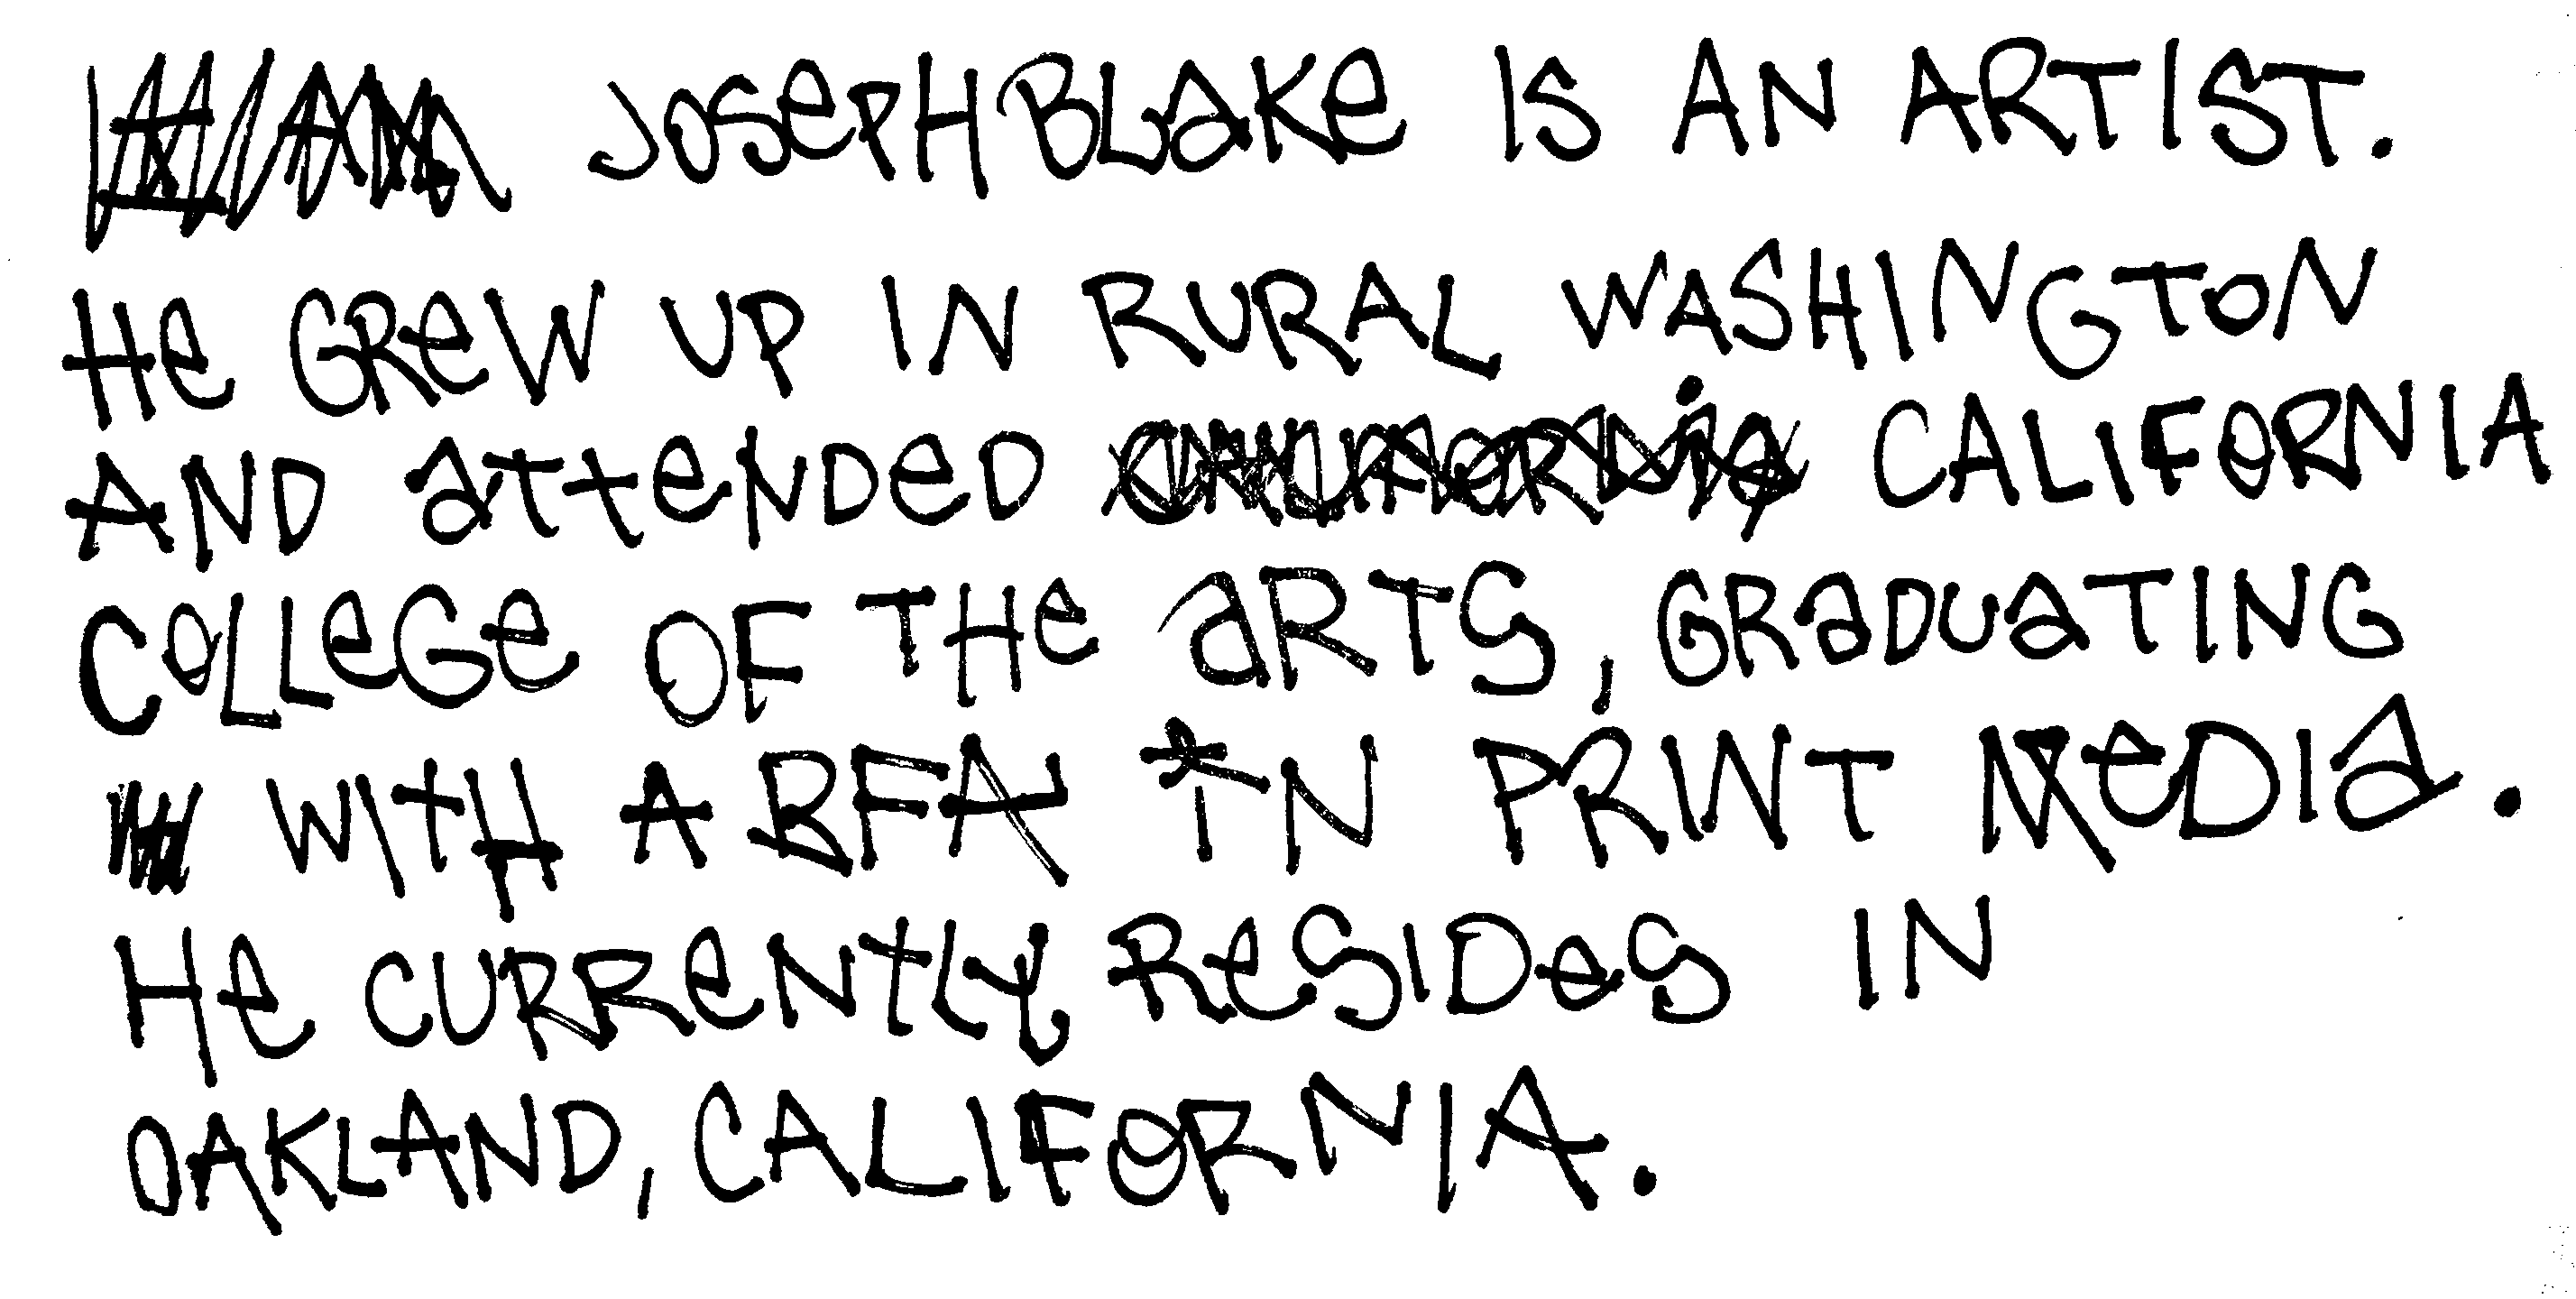 JOSEPH BLaKe IS AN ARTIST.
He GReW UP IN RURAL WASHINGTON
AND atteNDeD CALIFORNIA
COLLeGe OF THe aRTS, GRaDUaTING
WITH A BFA IN PRINT MeDIa.
He CURReNtLY ReSIDeS IN
OAKLAND, CALIFORNIA.